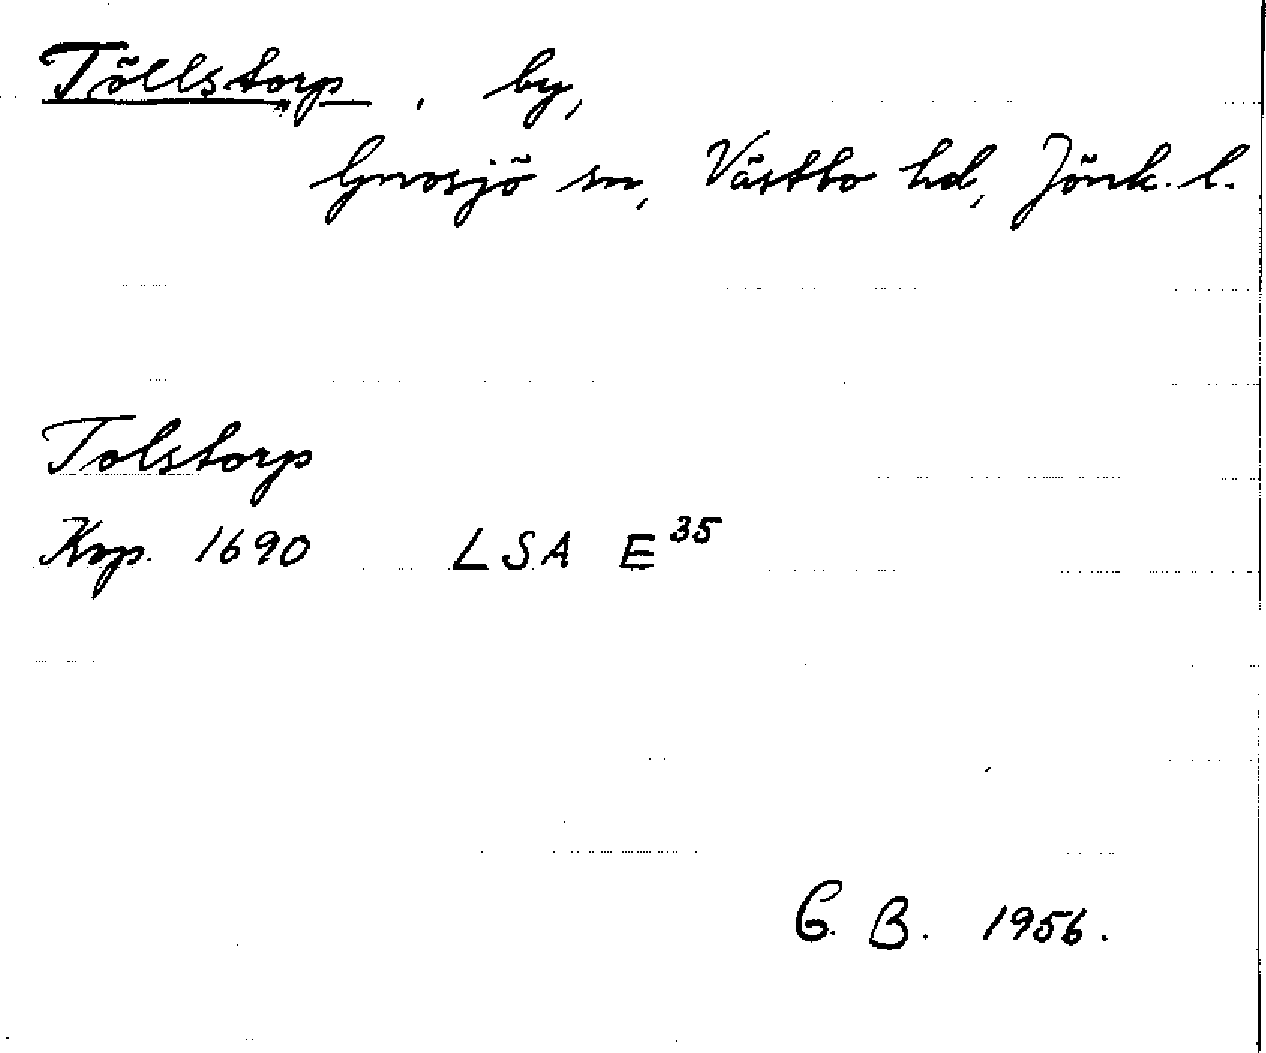 Töllstorp, by,
Gnosjö sn, Västbo hd, Jönk. l.
Tolstorp
Ksp. 1690 LSA E 35
G. B. 1956.